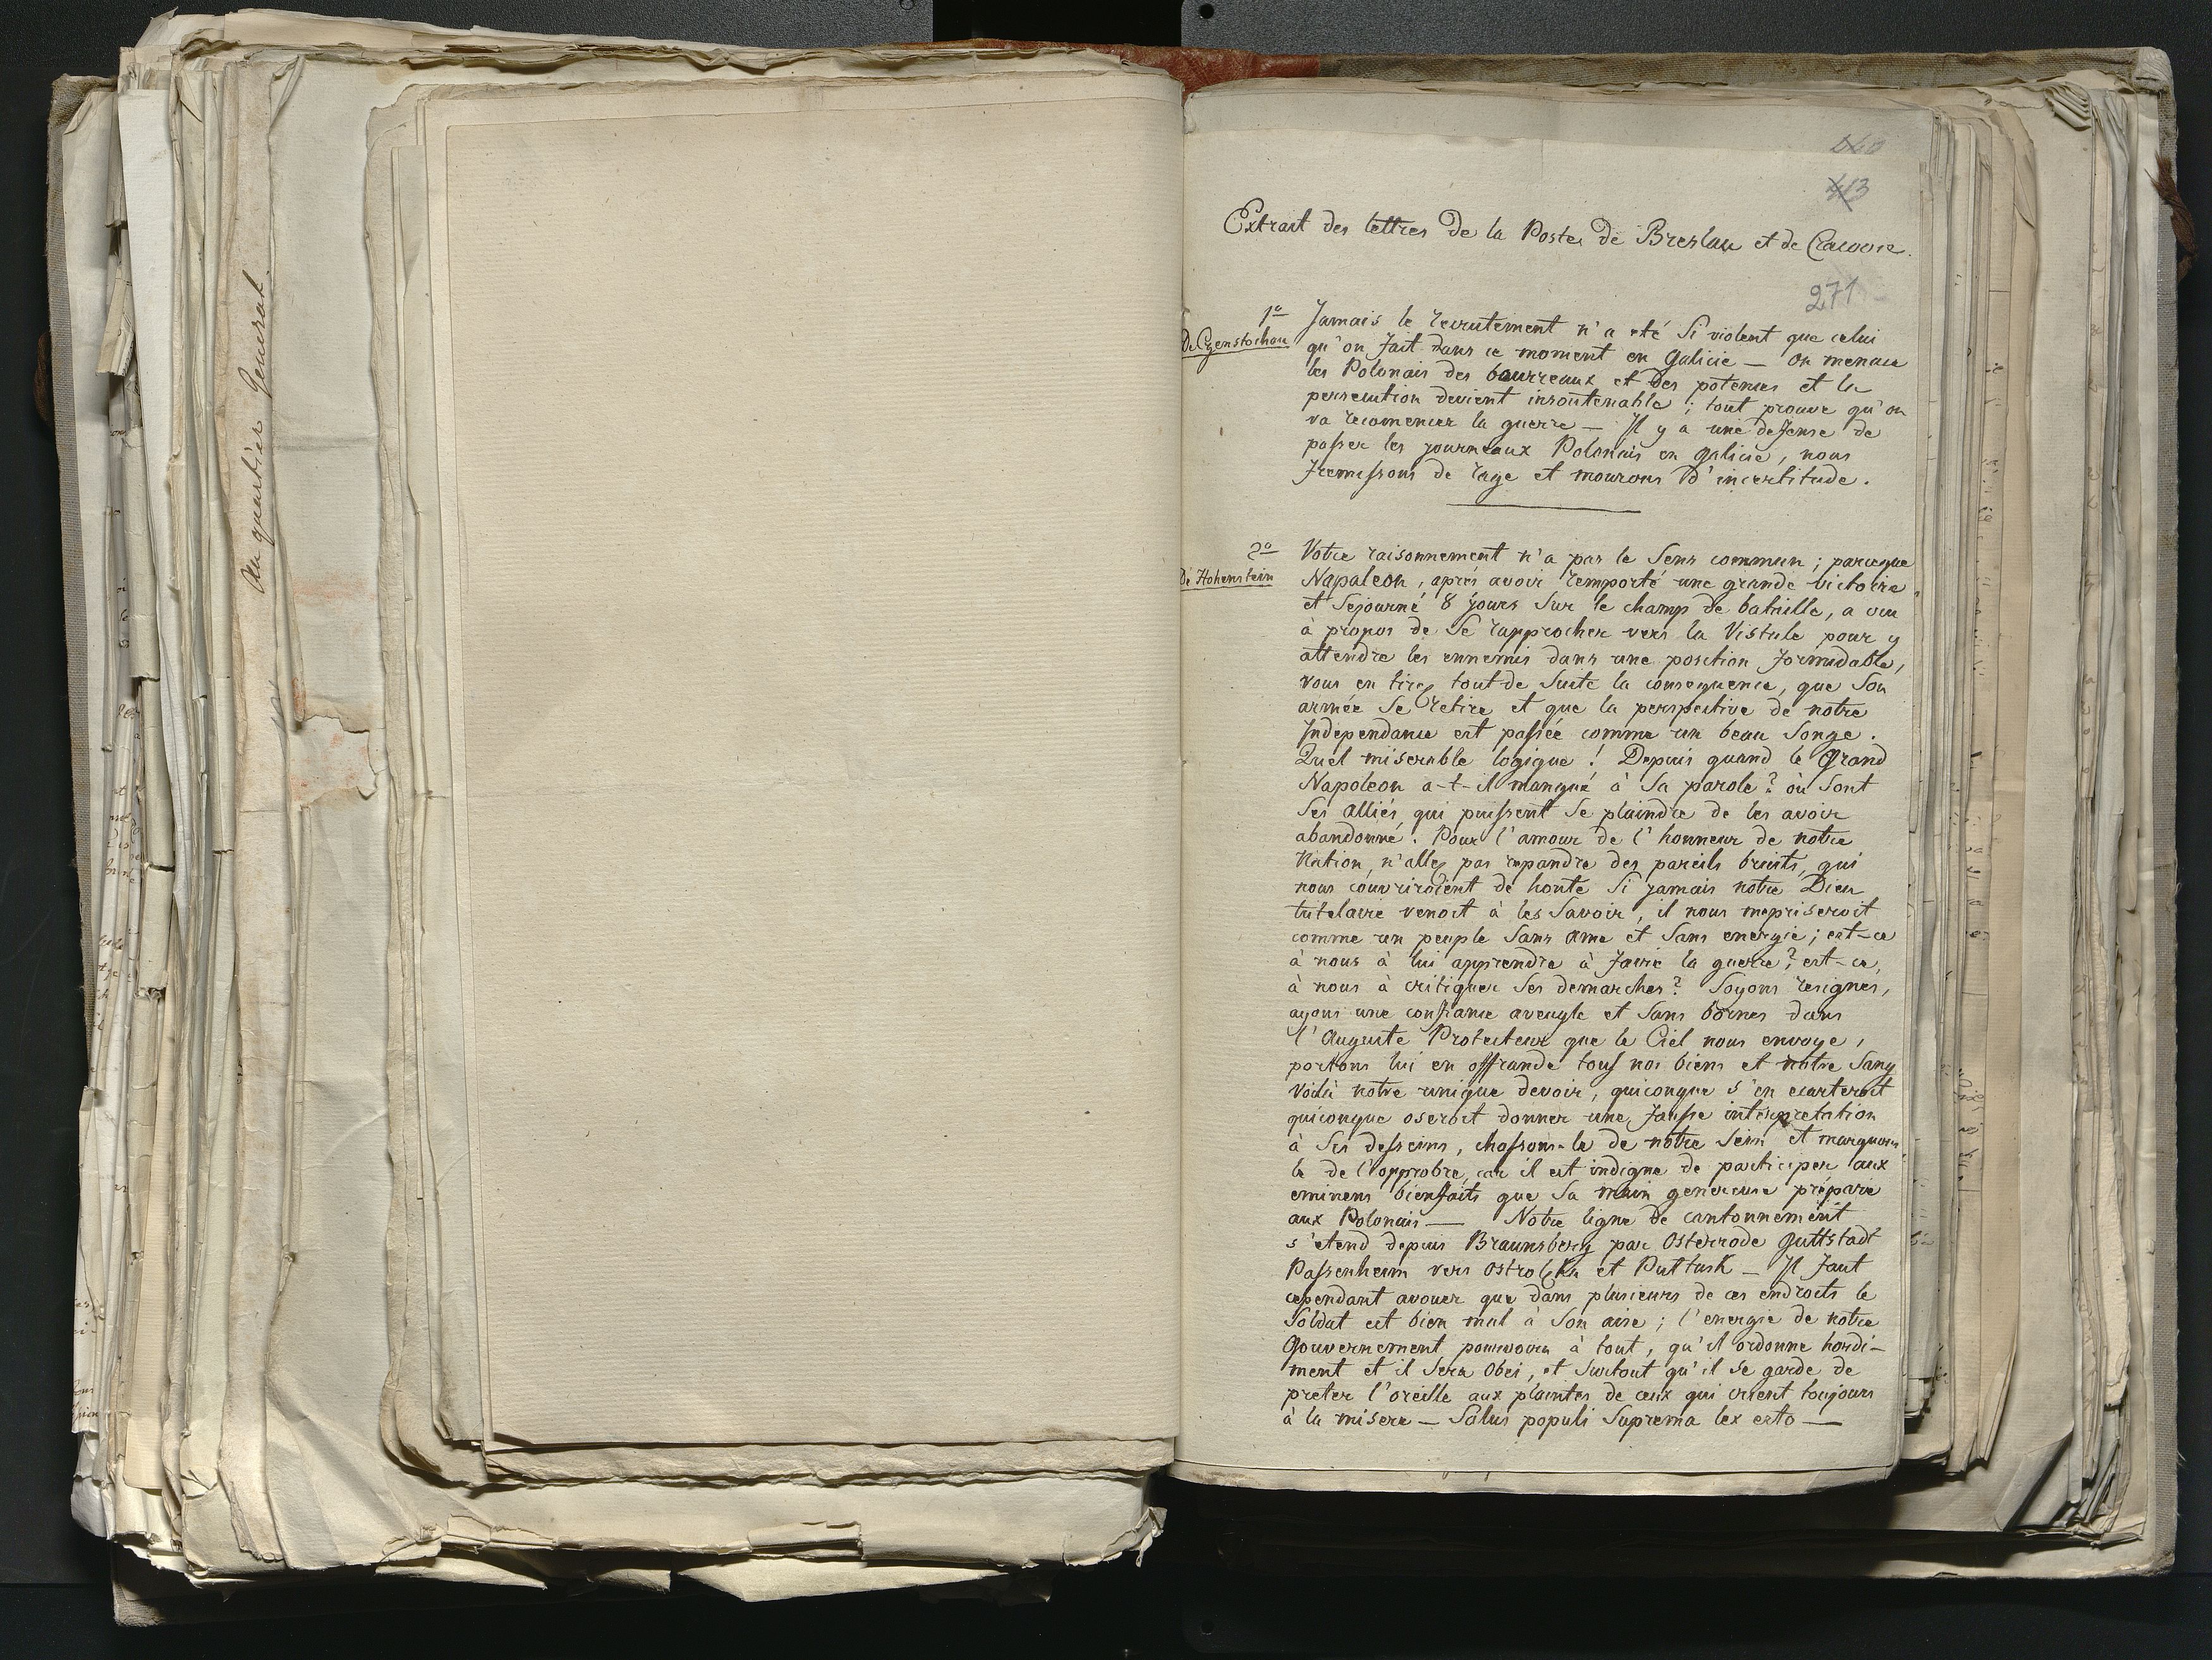 Au quartier General.
413
Extrait des lettres de la Poste de Breslau et de Cracovie.
271
1º Jamais le recrutement n'a eté si violent que celui
De Czenstochau qu'on fait dans ce moment en Galicie — On menace
les Polonais des bourreaux et des potences et la
persecution devient insoutenable ; tout prouve qu'on
va recomencer la guerre — Il y a une defense de
passer les journeaux Polonais en Galicie, nous
fremissons de rage et mourons d'incertitude.
2º Votre raisonnement n'a pas le sens commun ; parceque
De Hohenstein Napoleon, aprés avoir remporté une grande victoire
et sejourné 8 jours sur le champ de bataille, a cru
à propos de se rapprocher vers la Vistule pour y
attendre les ennemis dans une position formidable,
vous en tirez tout-de suite la consequence, que son
armée se retire et que la perspective de notre
Independance est passée comme un beau songe.
Quel miserable logique ! Depuis quand le Grand
Napoleon a-t-il manqué à sa parole ? où sont
ses alliés, qui puissent se plaindre de les avoir
abandonné. Pour l'amour de l'honneur de notre
Nation, n'allez pas repandre des pareils bruits, qui
nous couvriroient de honte si jamais notre Dieu
tutelaire venoit à les savoir, il nous mepriseroit
comme un peuple sans ame et sans energie ; est-ce
à nous à lui apprendre à faire la guerre ? est-ce
à nous à critiquer ses demarches ? Soyons resignes,
ayons une confiance aveugle et sans bornes dans
l'Auguste Protecteur que le Ciel nous envoye,
portons lui en offrande tous nos biens et notre sang
voilà notre unique devoir, quiconque s'en ecarteroit
quiconque oseroit donner une fausse interpretation
à ses desseins, chassons-le de notre sein et marquons
le de l'opprobre, car il est indigne de participer aux
eminens bienfaits que sa main genereuse prépare
aux Polonais — Notre ligne de cantonnement
s'etend depuis Braunsberg par Osterrode Guttstadt
Passenheim vers Ostrolęka et Pultusk — Il faut
cependant avouer que dans plusieurs de ces endroits le
Soldat est bien mal à son aise ; l'energie de notre
Gouvernement pourvoira à tout, qu'il ordonne hardi-
ment et il sera obei, et surtout qu'il se garde de
preter l'oreille aux plaintes de ceux qui crient toujours
à la misere — Salus populi suprema lex esto —